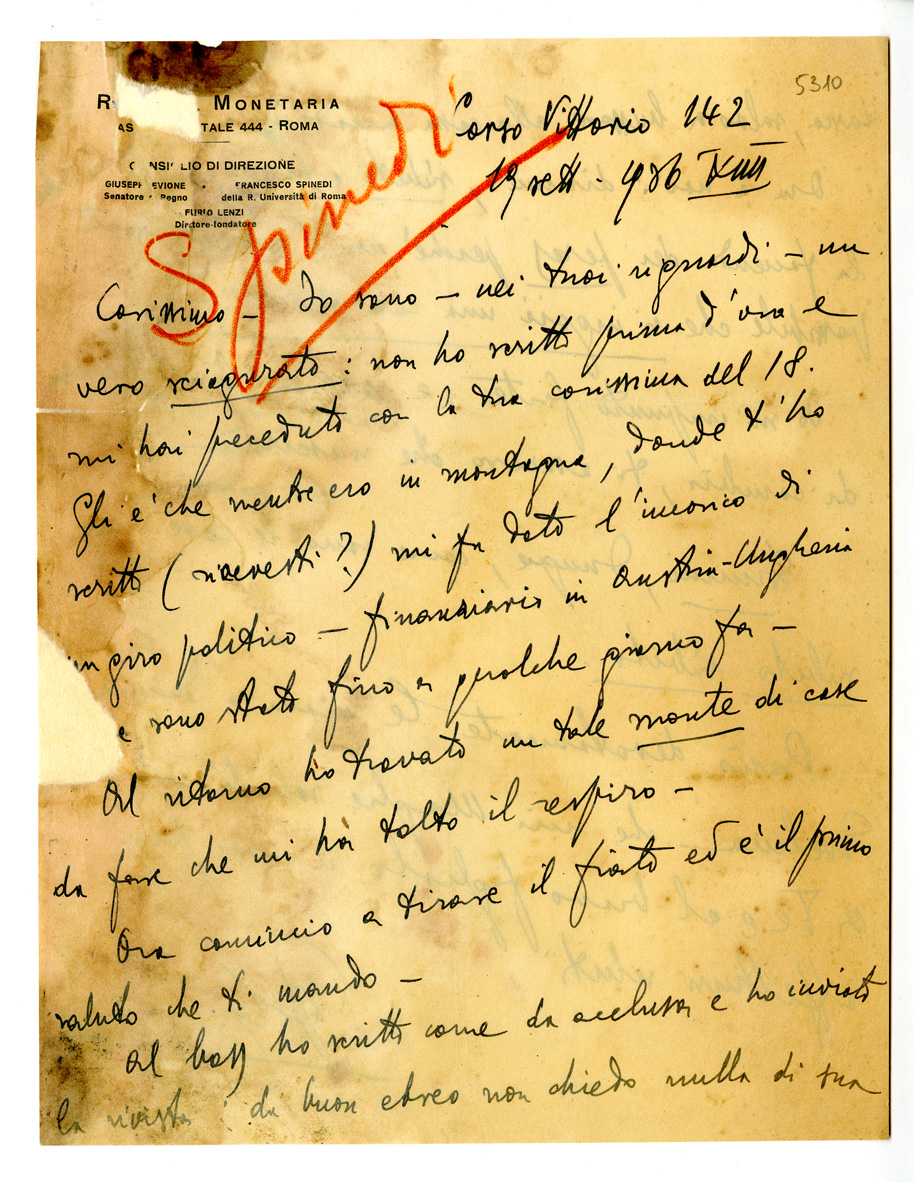 5310
R MONETARIA
TALE 444 - ROMA
CONSIGLIO DI DIREZIONE
GIUSEPPE BEVIONE FRANCESCO SPINEDI
Senatore Regno della R. Università di Roma
FURIO LENZI
Direttore-fondatore
Spinedi
Corso Vittorio 142
19 sett. 936 XIV
Carissimo - Io sono - nei tuoi riguardi - un
vero sciagurato: non ho scritto prima d'ora e
mi hai preceduto con la tua carissima del 18.
Gli è che mentre ero in montagna, donde t'ho
scritto (ricevesti?) mi fu dato l'incarico di
un giro politico - finanziario in Austria-Ungheria
e sono stato fino a qualche giorno fa -
Al ritorno ho trovato un tale monte di cose
da fare che mi ha tolto il respiro -
Ora comincio a tirare il fiato ed è il primo
saluto che ti mando -
Al ho scritto come da acclusa e ho inviato
la rivista: da buon ebreo non chiedo nulla di sua